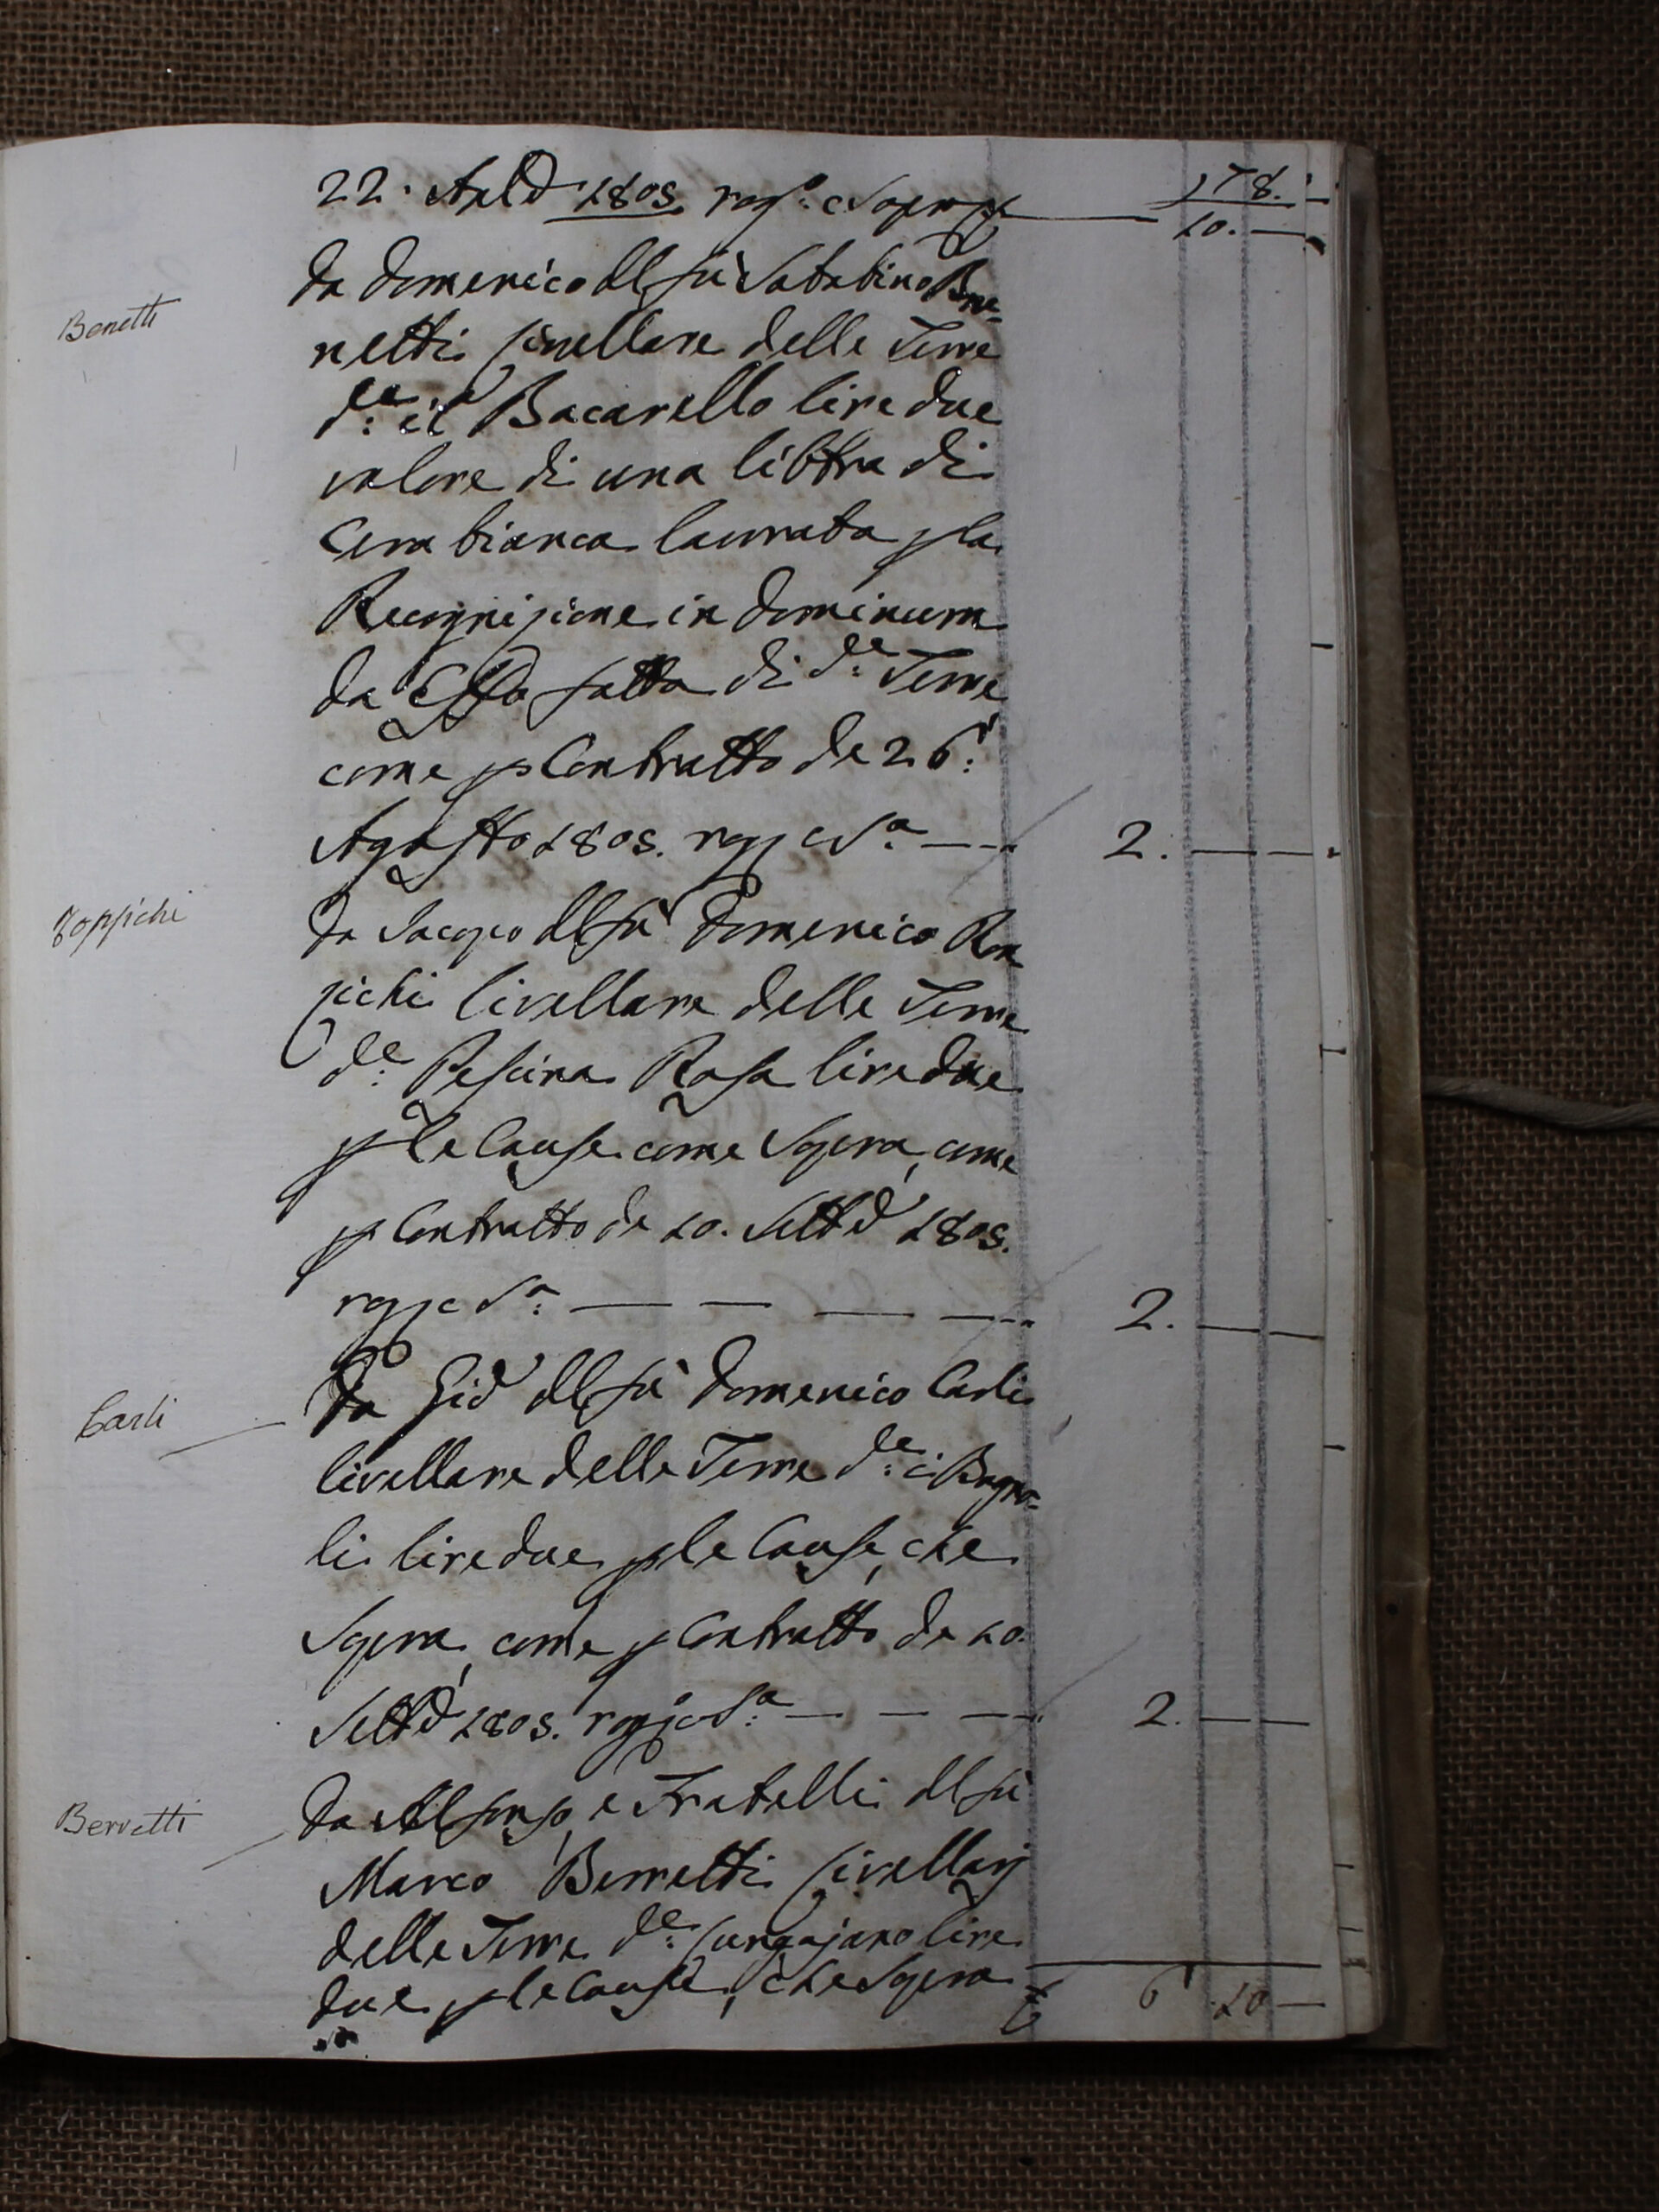 22. 1805. 178.
10. —
Benetti
da Domenico del fù Sabatino Bene-
netti livellare delle Terre
d.e il Bacarello lire due
valore di una libbra di
Cera bianca lavorata p la
Recognizione in Dominum
da Esso fatta di d.e Terre
come p Contratto de 26.
Agosto 1805. rog. c S.a — 2. — —
Zoppichi
da Jacopo del fù Domenico
pichi livellare delle Terre
d.e Pescina Rosa lire due
p le Cause come Sopra, come
p Contratto de 10. Setto 1805.
rog. c S.a — — — — 2. — —
Carli
da Gio del fù Domenico Carli
livellare delle Terre d.e i Bagno-
li lire due p le Cause, che
Sopra, come p Contratto de 10.
Setto 1805. rog. c S.a — — — 2. — —
Berretti
da Alfonso, e Fratelli del fù
Marco Berretti livellarj
delle Terre d.e lire
due p le Cause, che Sopra
6 10 —